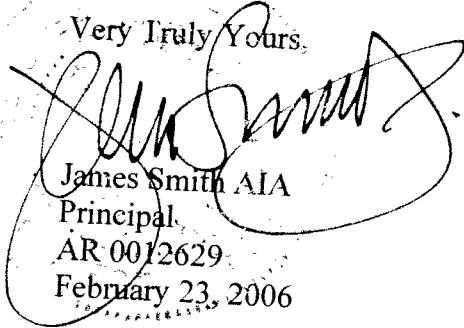 Very Truly Yours
James Smith AIA
Principal
AR 0012629
February 23, 2006